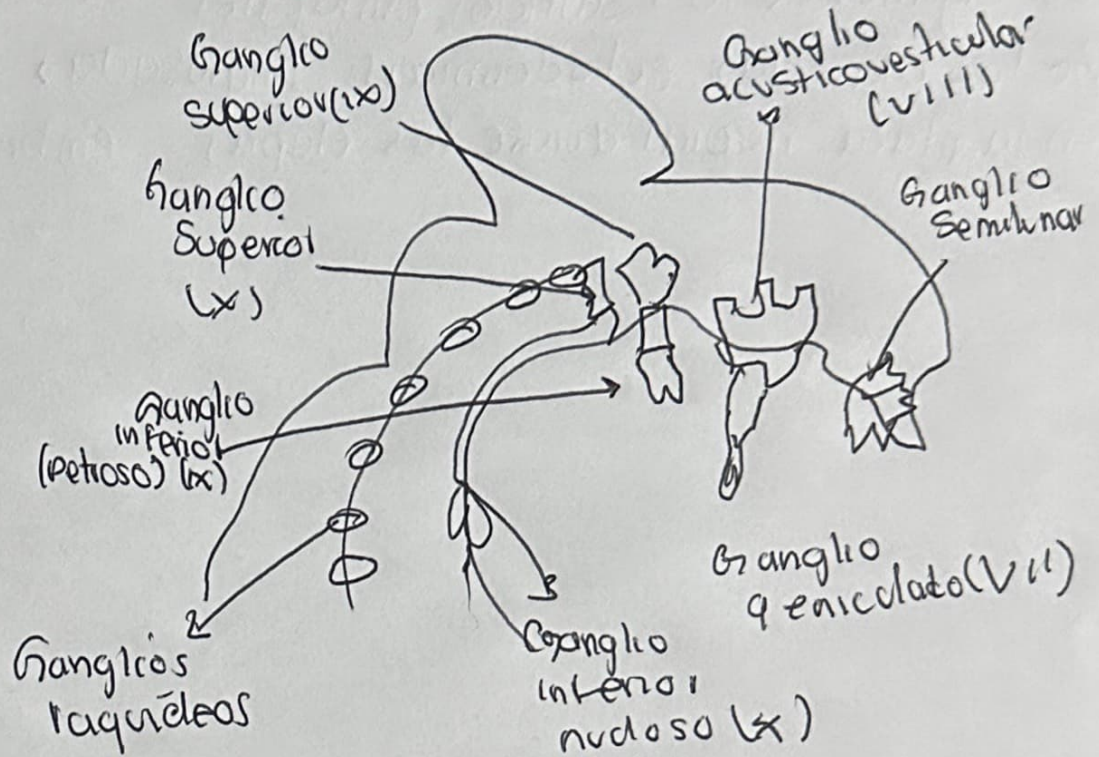 Ganglio
superior (IX)
Ganglio
acusticovesticular
(VIII)
Ganglio
Semilunar
Ganglio
Superior
(X)
Ganglio
inferior
(petroso) (IX)
Ganglio
geniculato (VII)
Ganglios
raquídeos
Ganglio
inferior
nudoso (X)